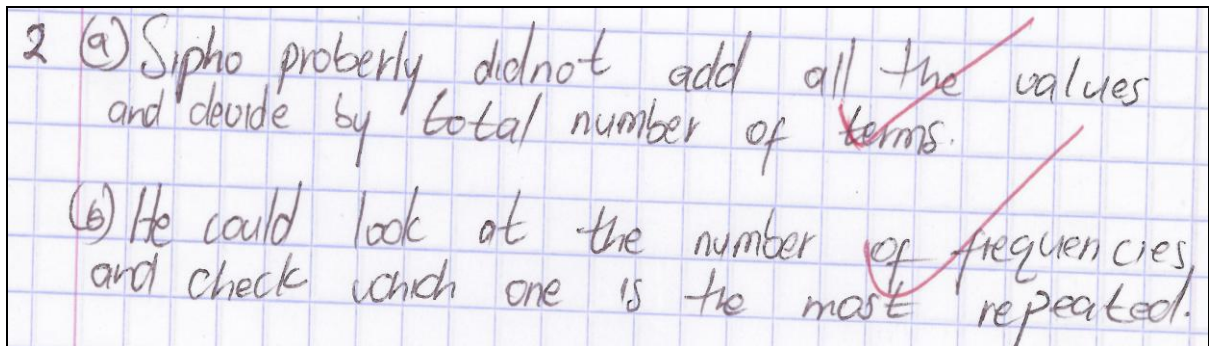 2 (a) Sipho proberly didnot add all the values
and devide by total number of terms.
(b) He could look at the number of frequencies,
and check which one is the most repeated.